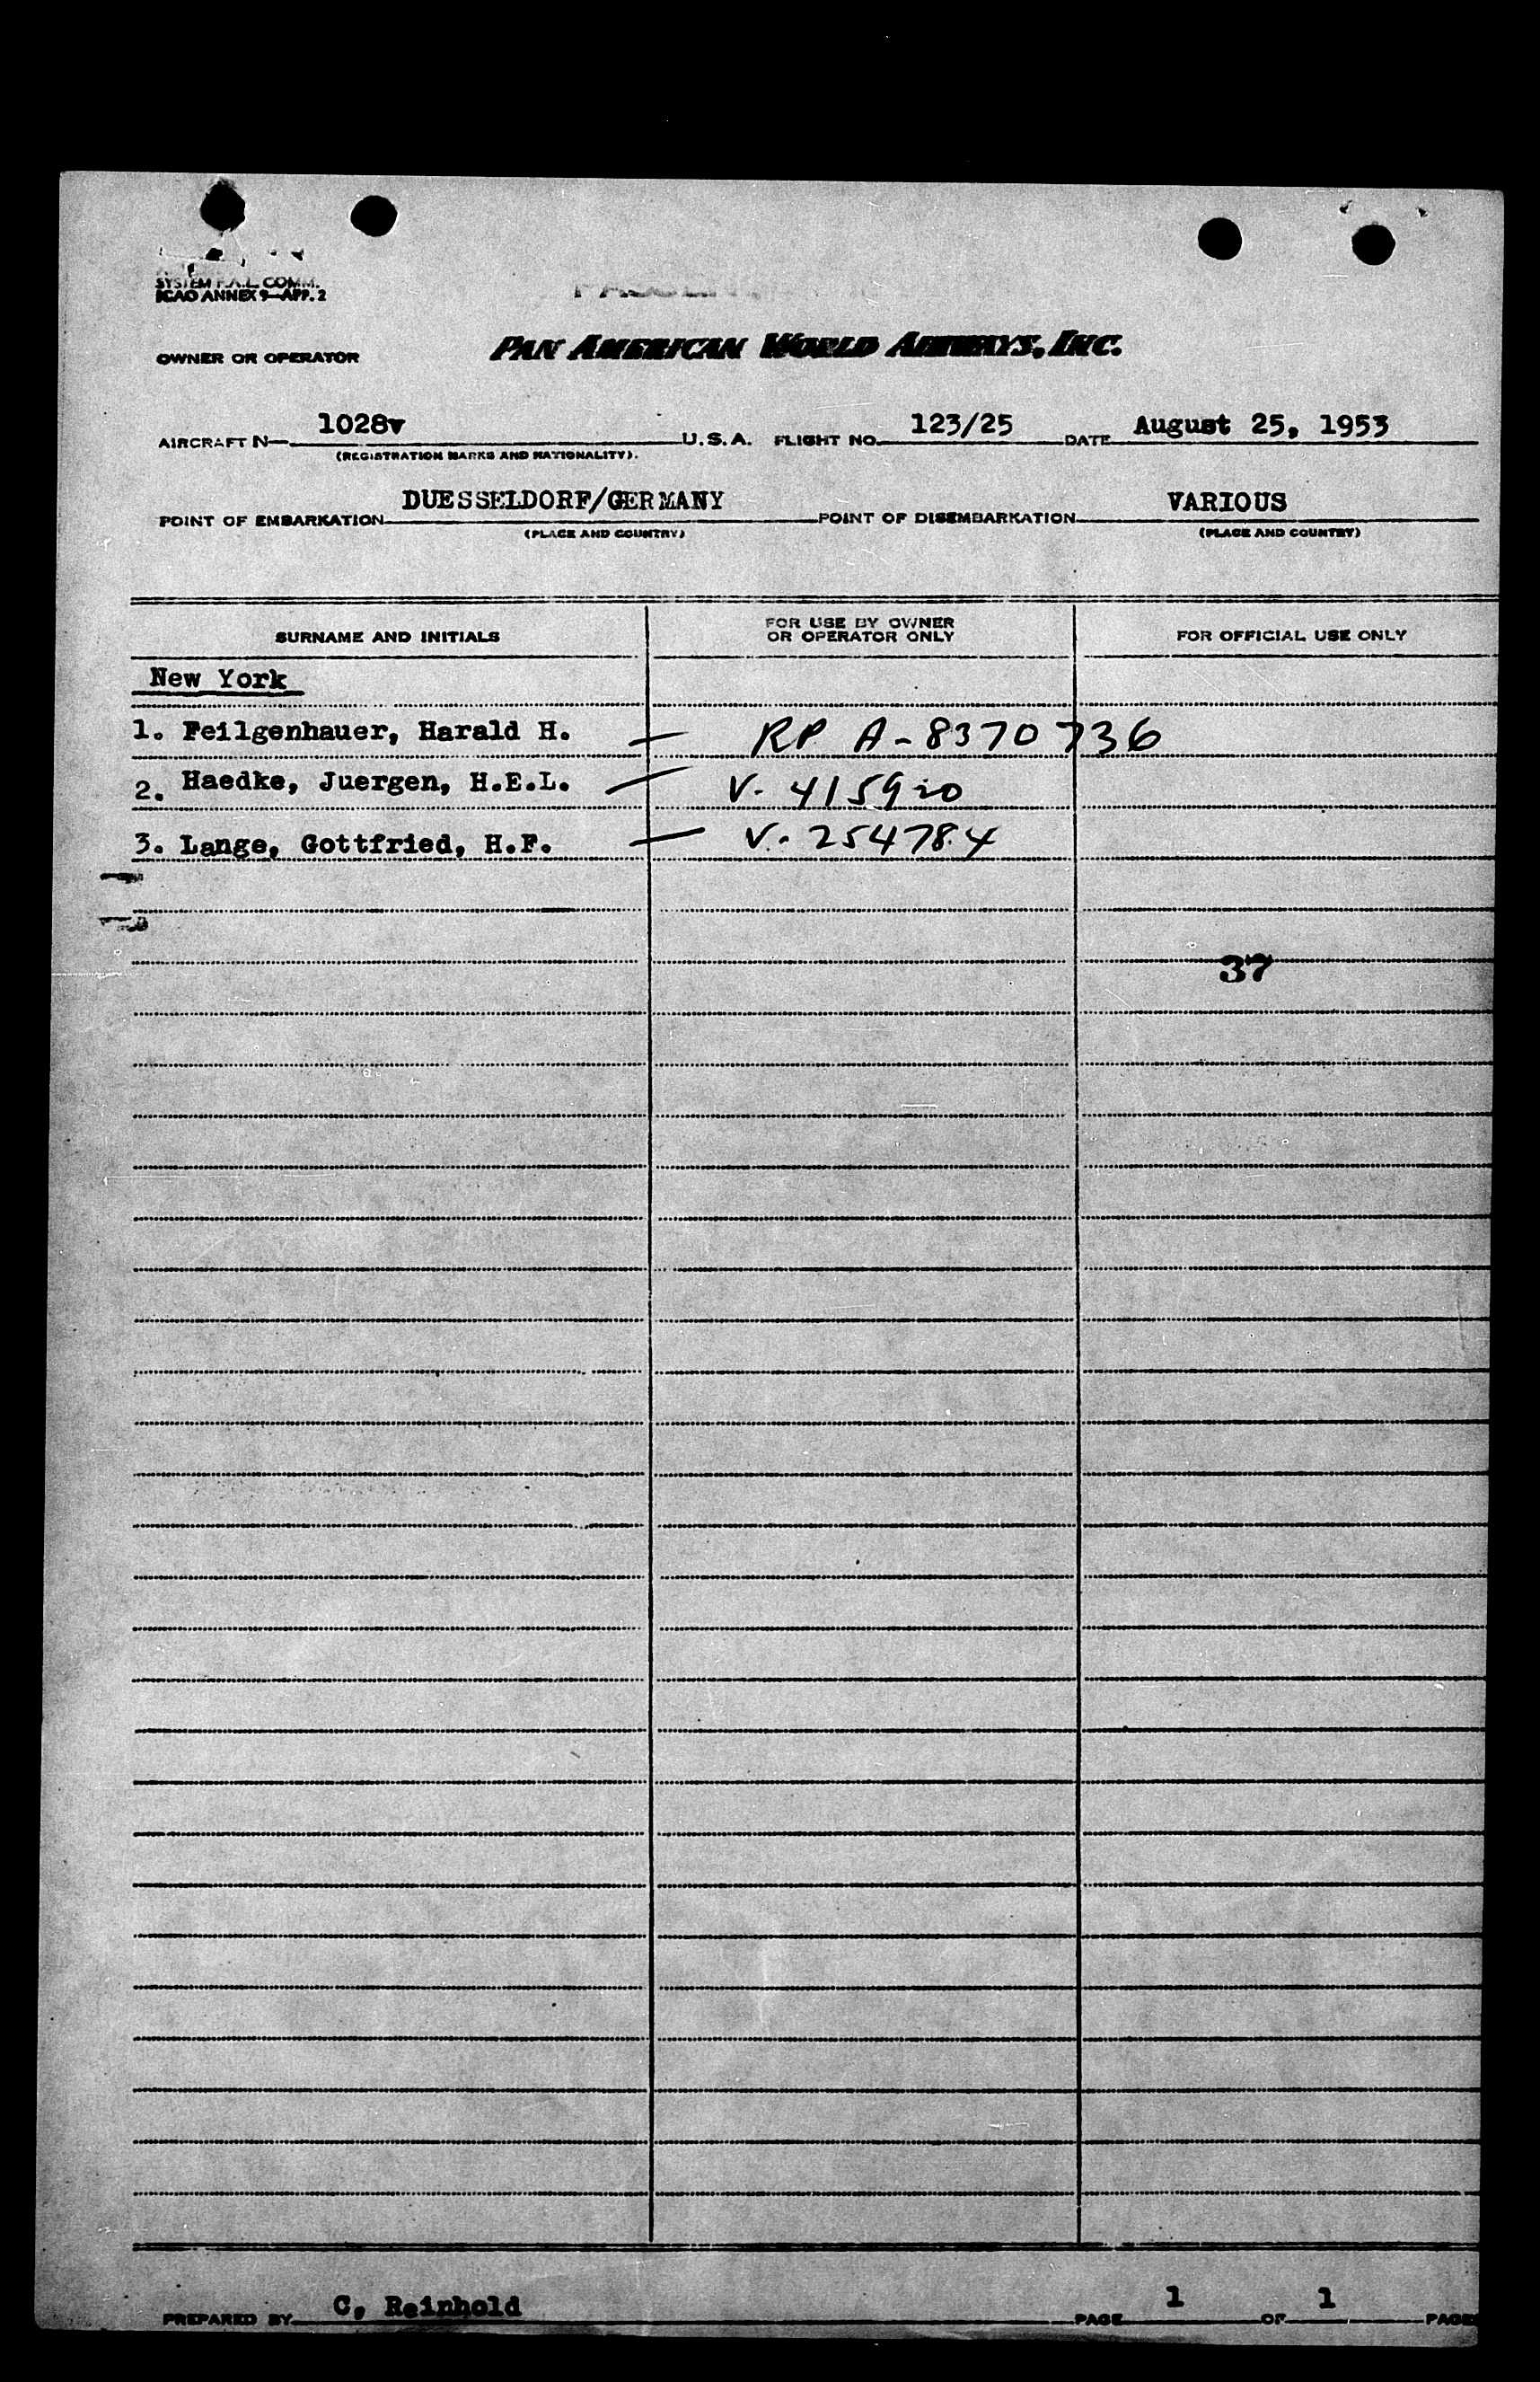 SYSTEM P.A.L. COMM.
ICAO ANNEX 9—APP. 2
OWNER OR OPERATOR PAN AMERICAN WORLD AIRWAYS, INC.
AIRCRAFT N— 1028v U.S.A. FLIGHT NO. 123/25 DATE August 25, 1953
(REGISTRATION MARKS AND NATIONALITY).
POINT OF EMBARKATION DUESSELDORF/GERMANY POINT OF DISEMBARKATION VARIOUS
(PLACE AND COUNTRY) (PLACE AND COUNTRY)
SURNAME AND INITIALS FOR USE BY OWNER OR OPERATOR ONLY FOR OFFICIAL USE ONLY
New York
1. Feilgenhauer, Harald H. — RP A-8370736
2. Haedke, Juergen, H.E.L. — V- 415920
3. Lange, Gottfried, H.F. — V- 254784
37
PREPARED BY C, Reinhold PAGE 1 OF 1 PAGES